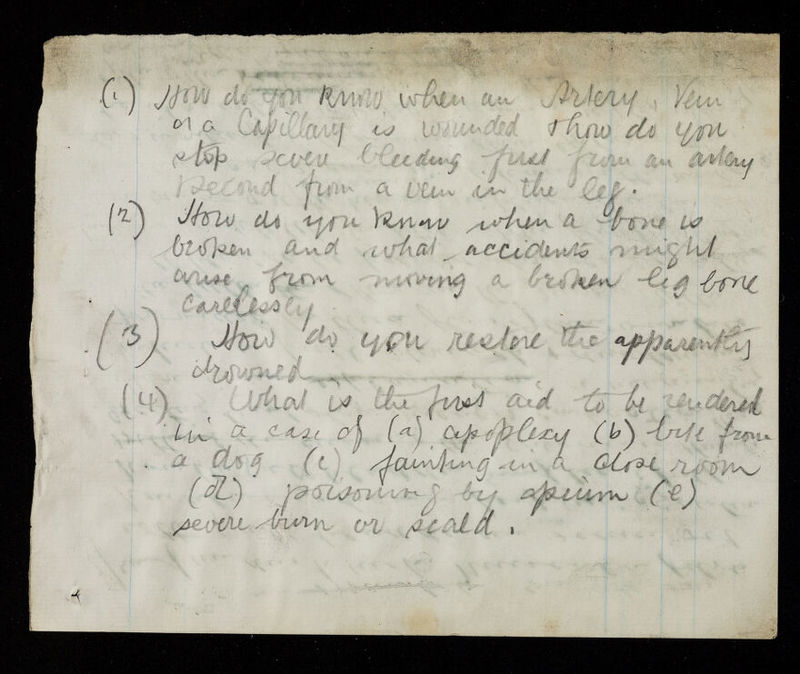 (1) How do you know when an Artery, Vein
or a Capillary is wounded & how do you
stop severe bleeding first from an artery
& second from a vein in the leg.
(2) How do you know when a bone is
broken and what accidents might
arise from moving a broken leg bone
carelessly
(3) How do you restore the apparently
drowned
(4) What is the first aid to be rendered
in a case of (a) apoplexy (b) bite from
a dog (c) fainting in a close room
(d) poisoning by opium (e)
severe burn or scald.